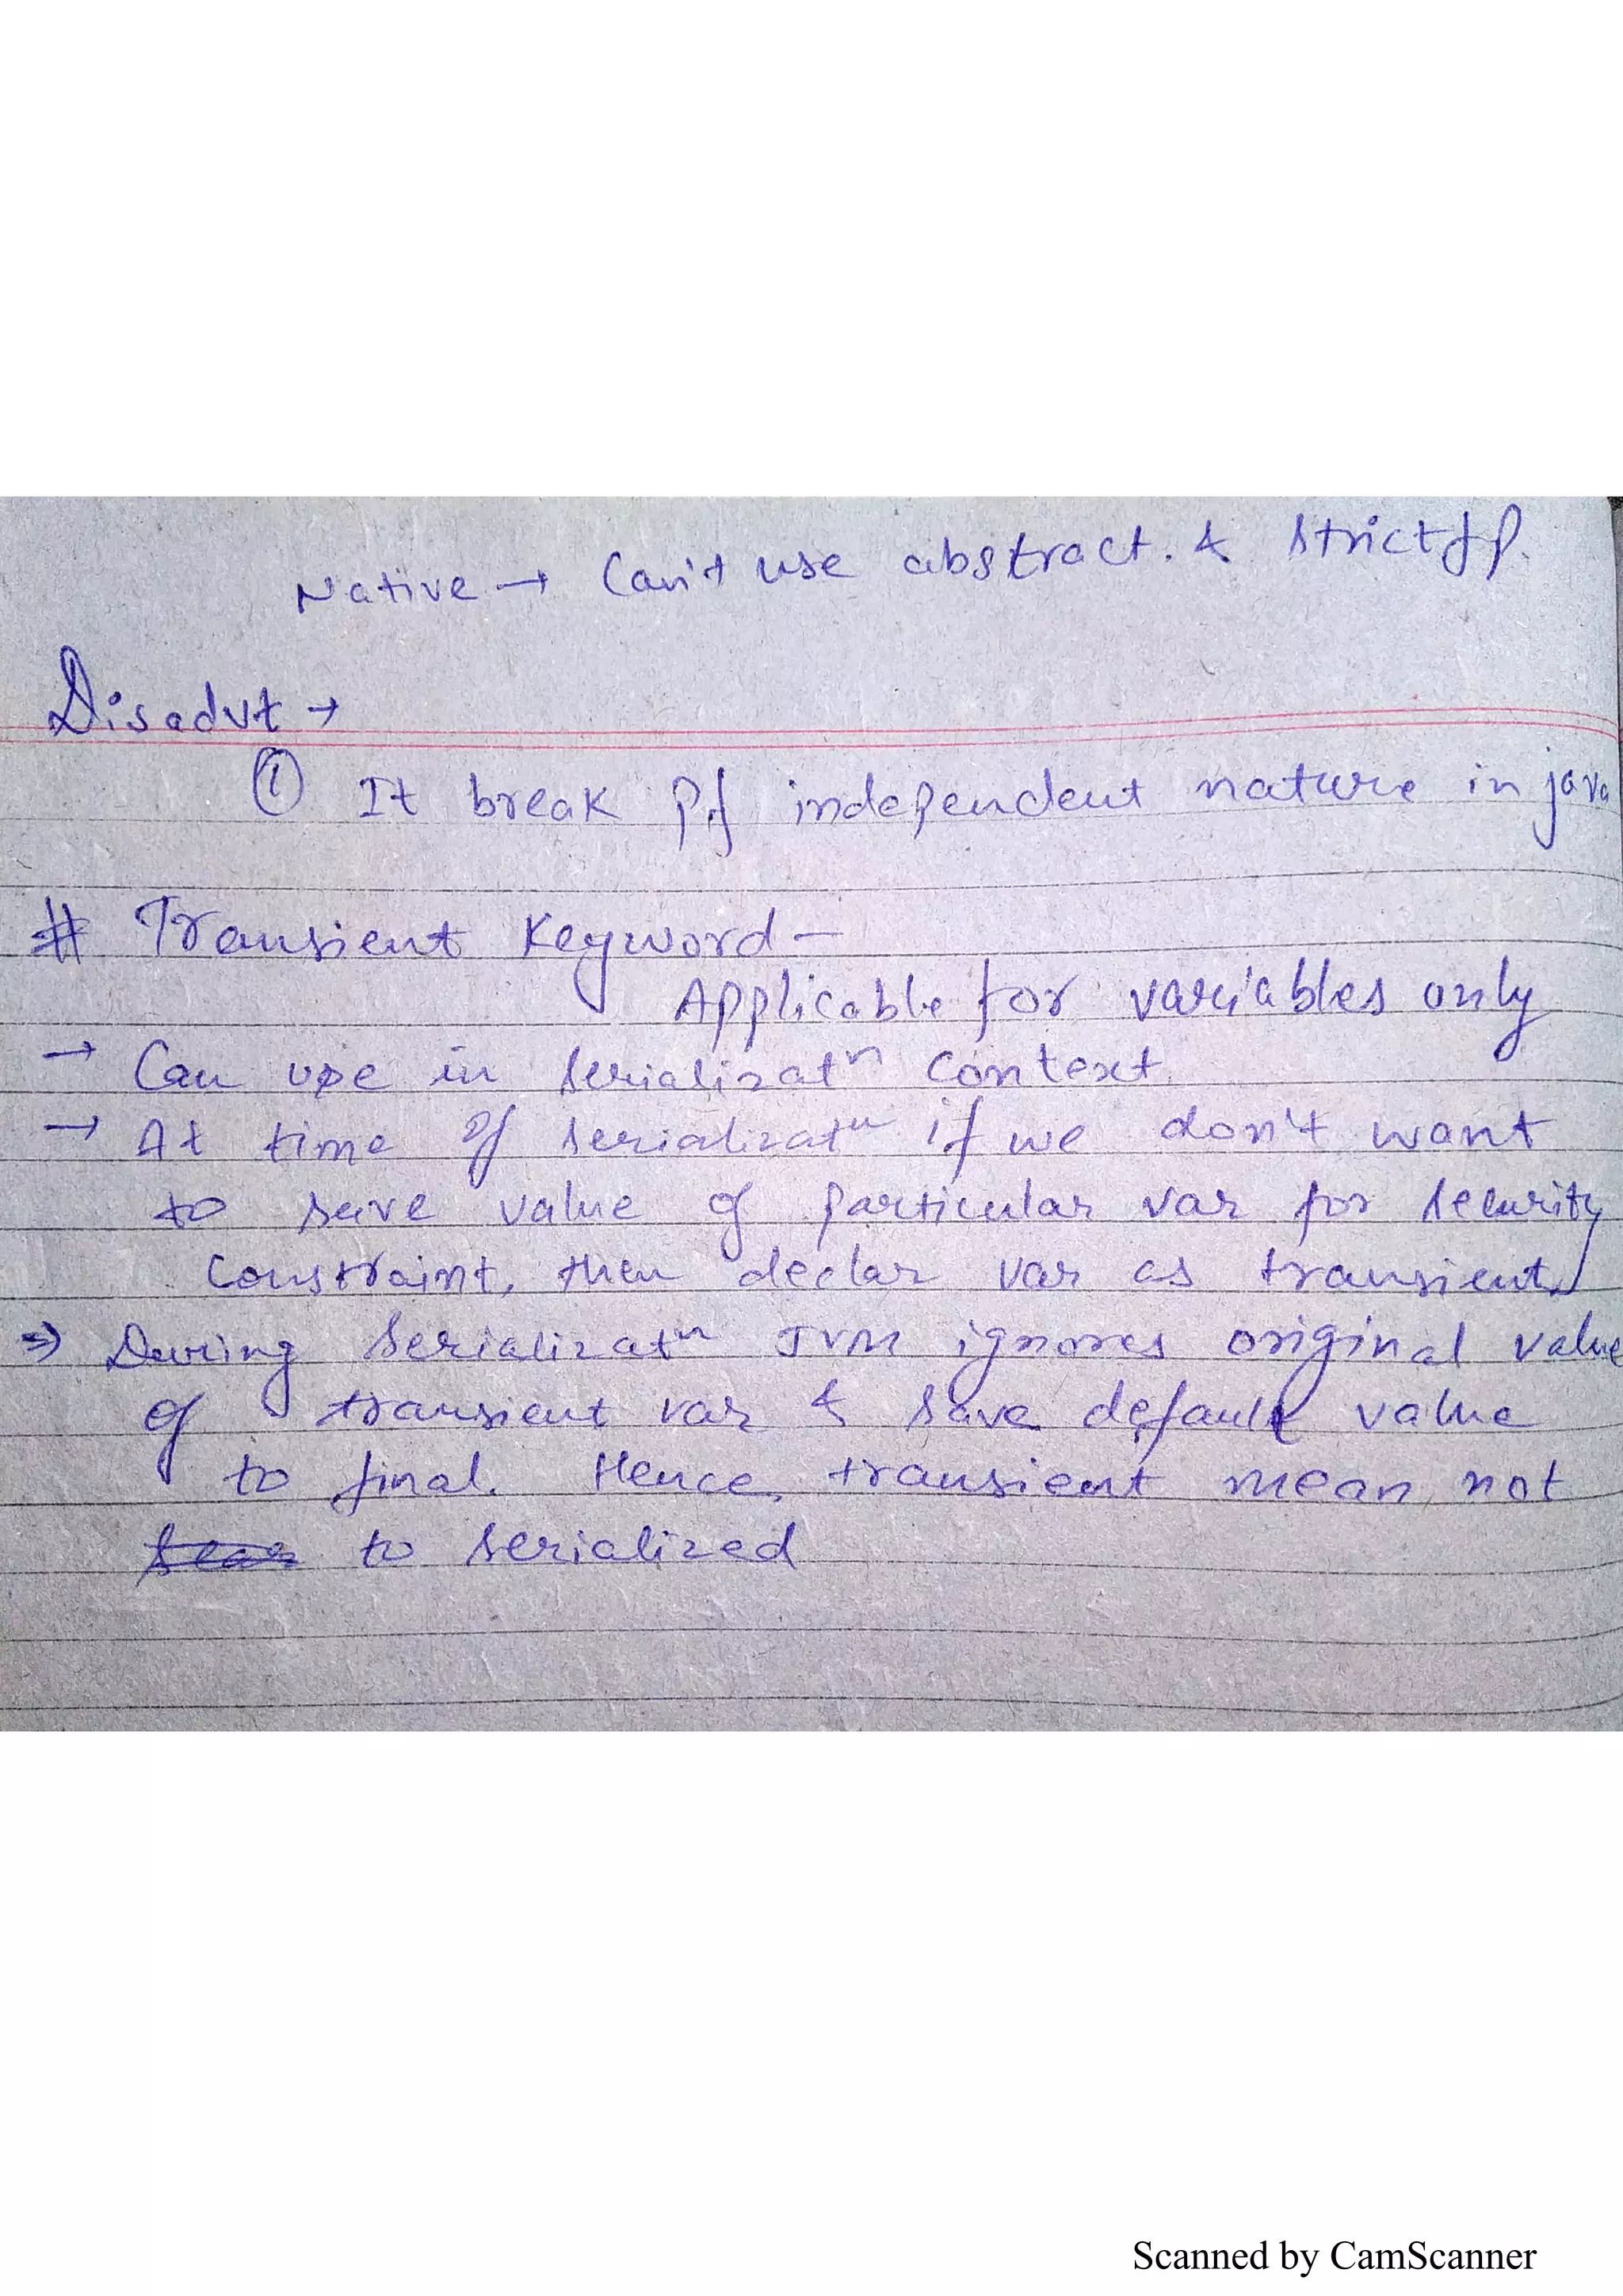 Native → Can't use abstract. & strictfp.
Disadvt →
① It break p.f independent nature in java
# Transient Keyword –
Applicable for variables only
→ Can use in serializatn context
→ At time of serializatn if we don't want
to save value of particular var for security
constraint, then declar var as transient.
⇒ During serializatn JVM ignores original value
of transient var & save default value
to final. Hence, transient mean not
to serialized
Scanned by CamScanner